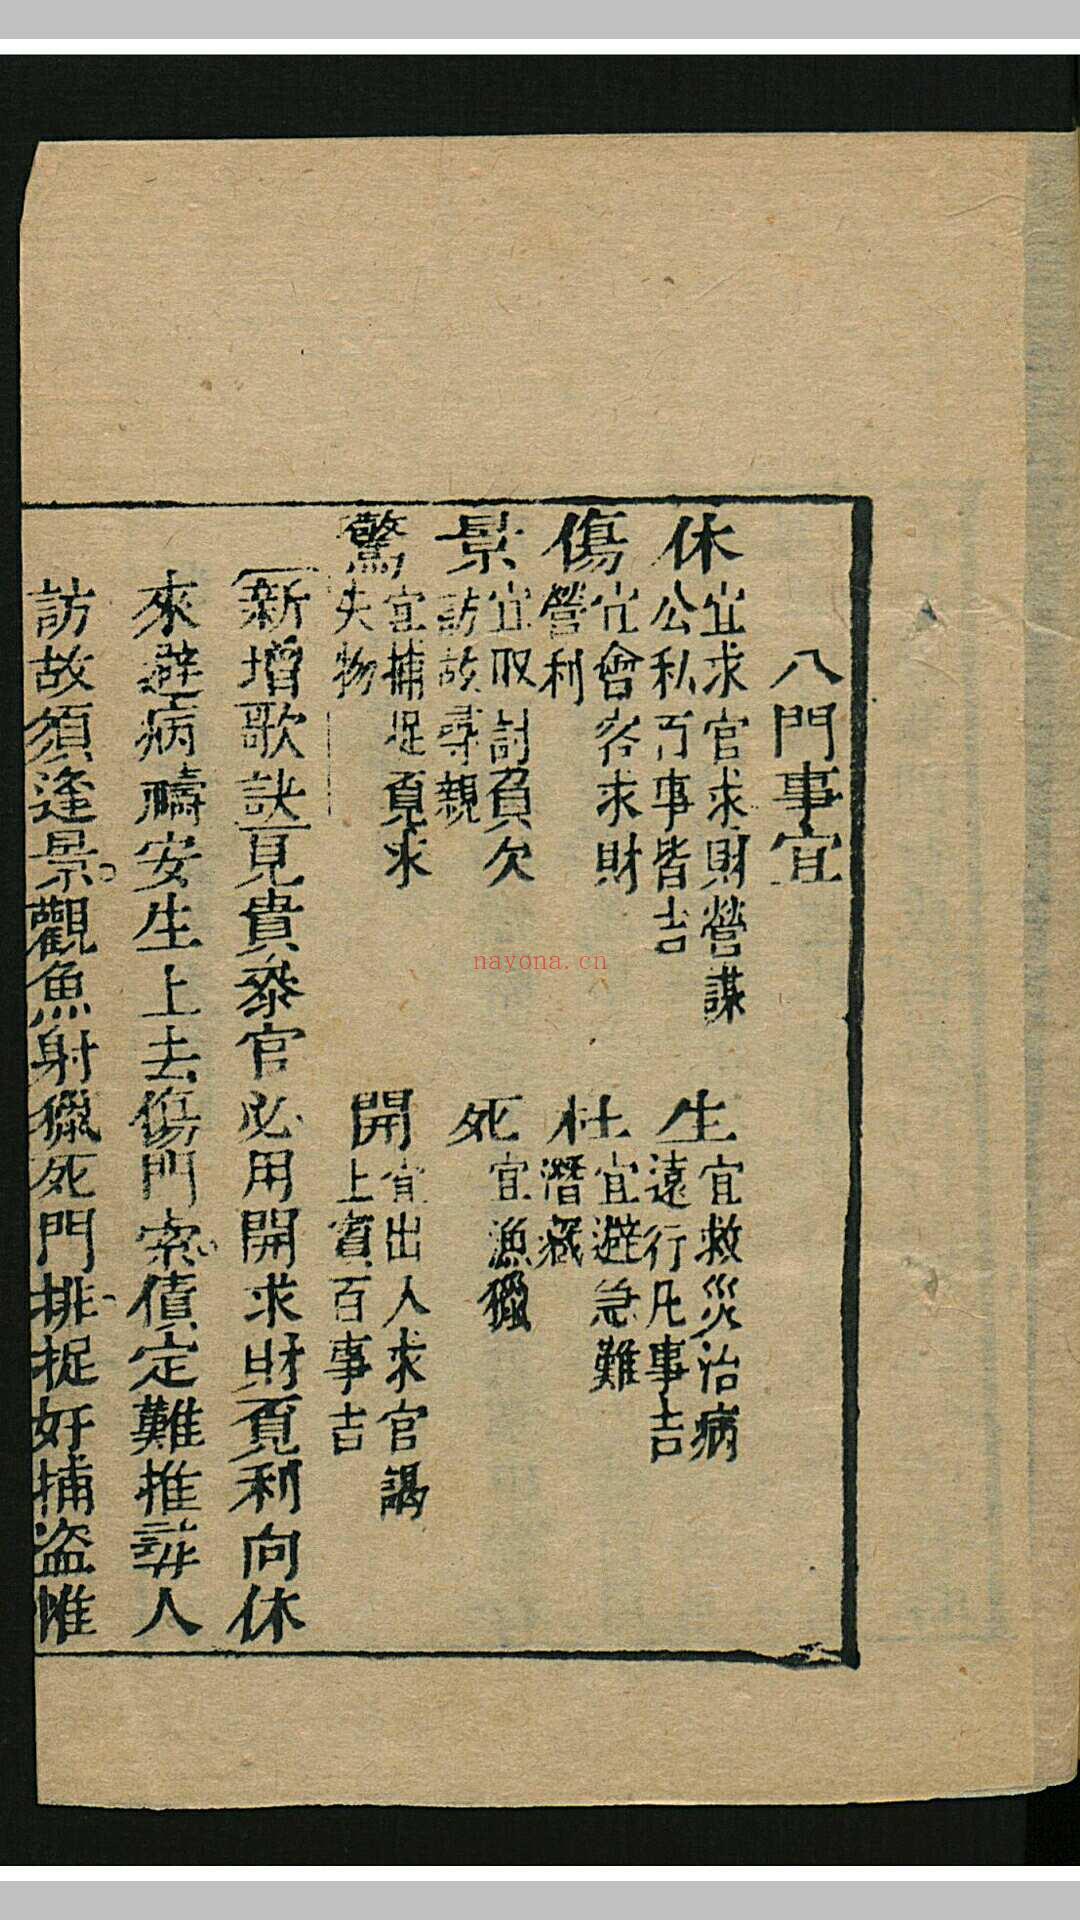 八門事宜
休 宜求官求財營謀
公私百事皆吉
生 宜救災治病
遠行凡事吉
傷 宜會客求財
營利
杜 宜避急難
潛藏
景 宜取討負欠
訪故尋親
死 宜漁獵
驚 宜捕捉覔求
失物
開 宜出入求官謁
上賓百事吉
新增歌訣見貴叅官必用開求財覔利向休
來避病禱安生上去傷門索債定難推訪人
訪故須逢景觀魚射獵死門排捉奸捕盗惟
nayona.cn